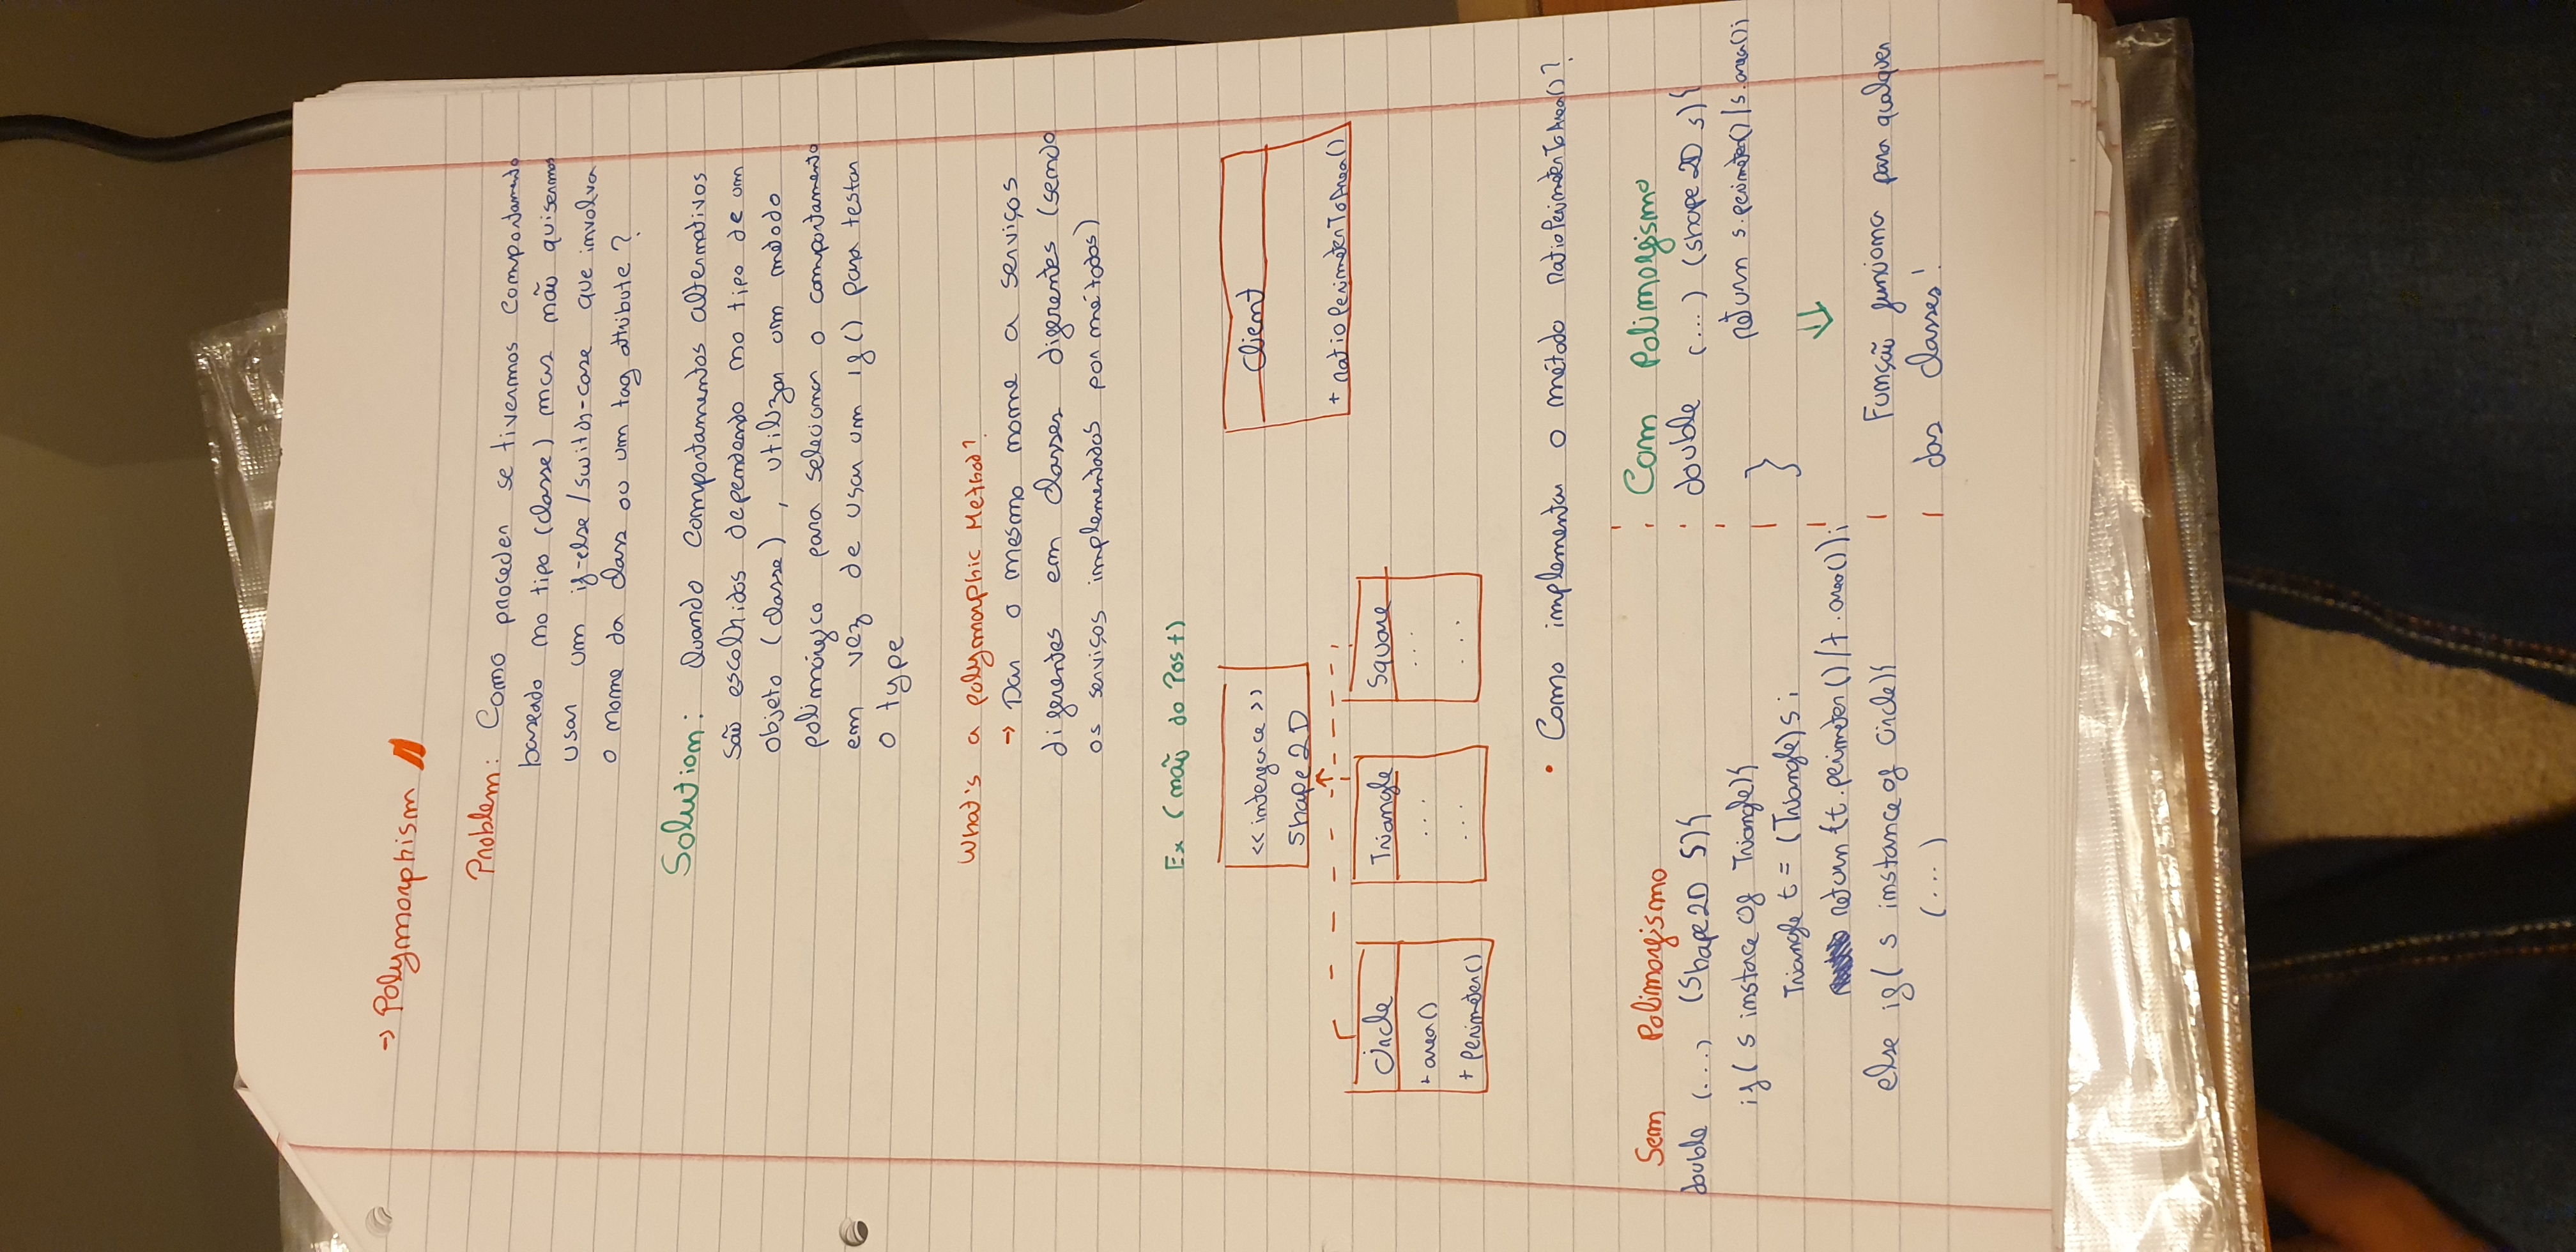 → Polymorphism
Problem: Como proceder se tivermos comportamento
baseado no tipo (classe) mas não quisermos
usar um if-else/switch-case que involva
o nome da class ou um tag attribute?
Solution: Quando comportamentos alternativos
são escolhidos dependendo no tipo de um
objeto (classe), utilizar um método
polimórfico para selecionar o comportamento
em vez de usar um if() para testar
o type
What's a polymorphic Method?
→ Dar o mesmo nome a serviços
diferentes em classes diferentes (sendo
os serviços implementados por métodos)
Ex (não do Post)
<< interface >>
Shape2D
Client
+ ratioPerimeterToArea()
Circle
+ area()
+ perimeter()
Triangle
...
...
Square
...
...
• Como implementar o método ratioPerimeterToArea()?
Sem Polimorfismo
double (...) (Shape2D S){
if( s instace of Triangle){
Triangle t = (Triangle)s;
return (t.perimeter()/t.area());
else if( s instance of Circle){
(...)
Com Polimorfismo
double (...) (shape2D s){
return s.perimeter()/s.area();
}
⇓
Função funciona para qualquer
das classes!